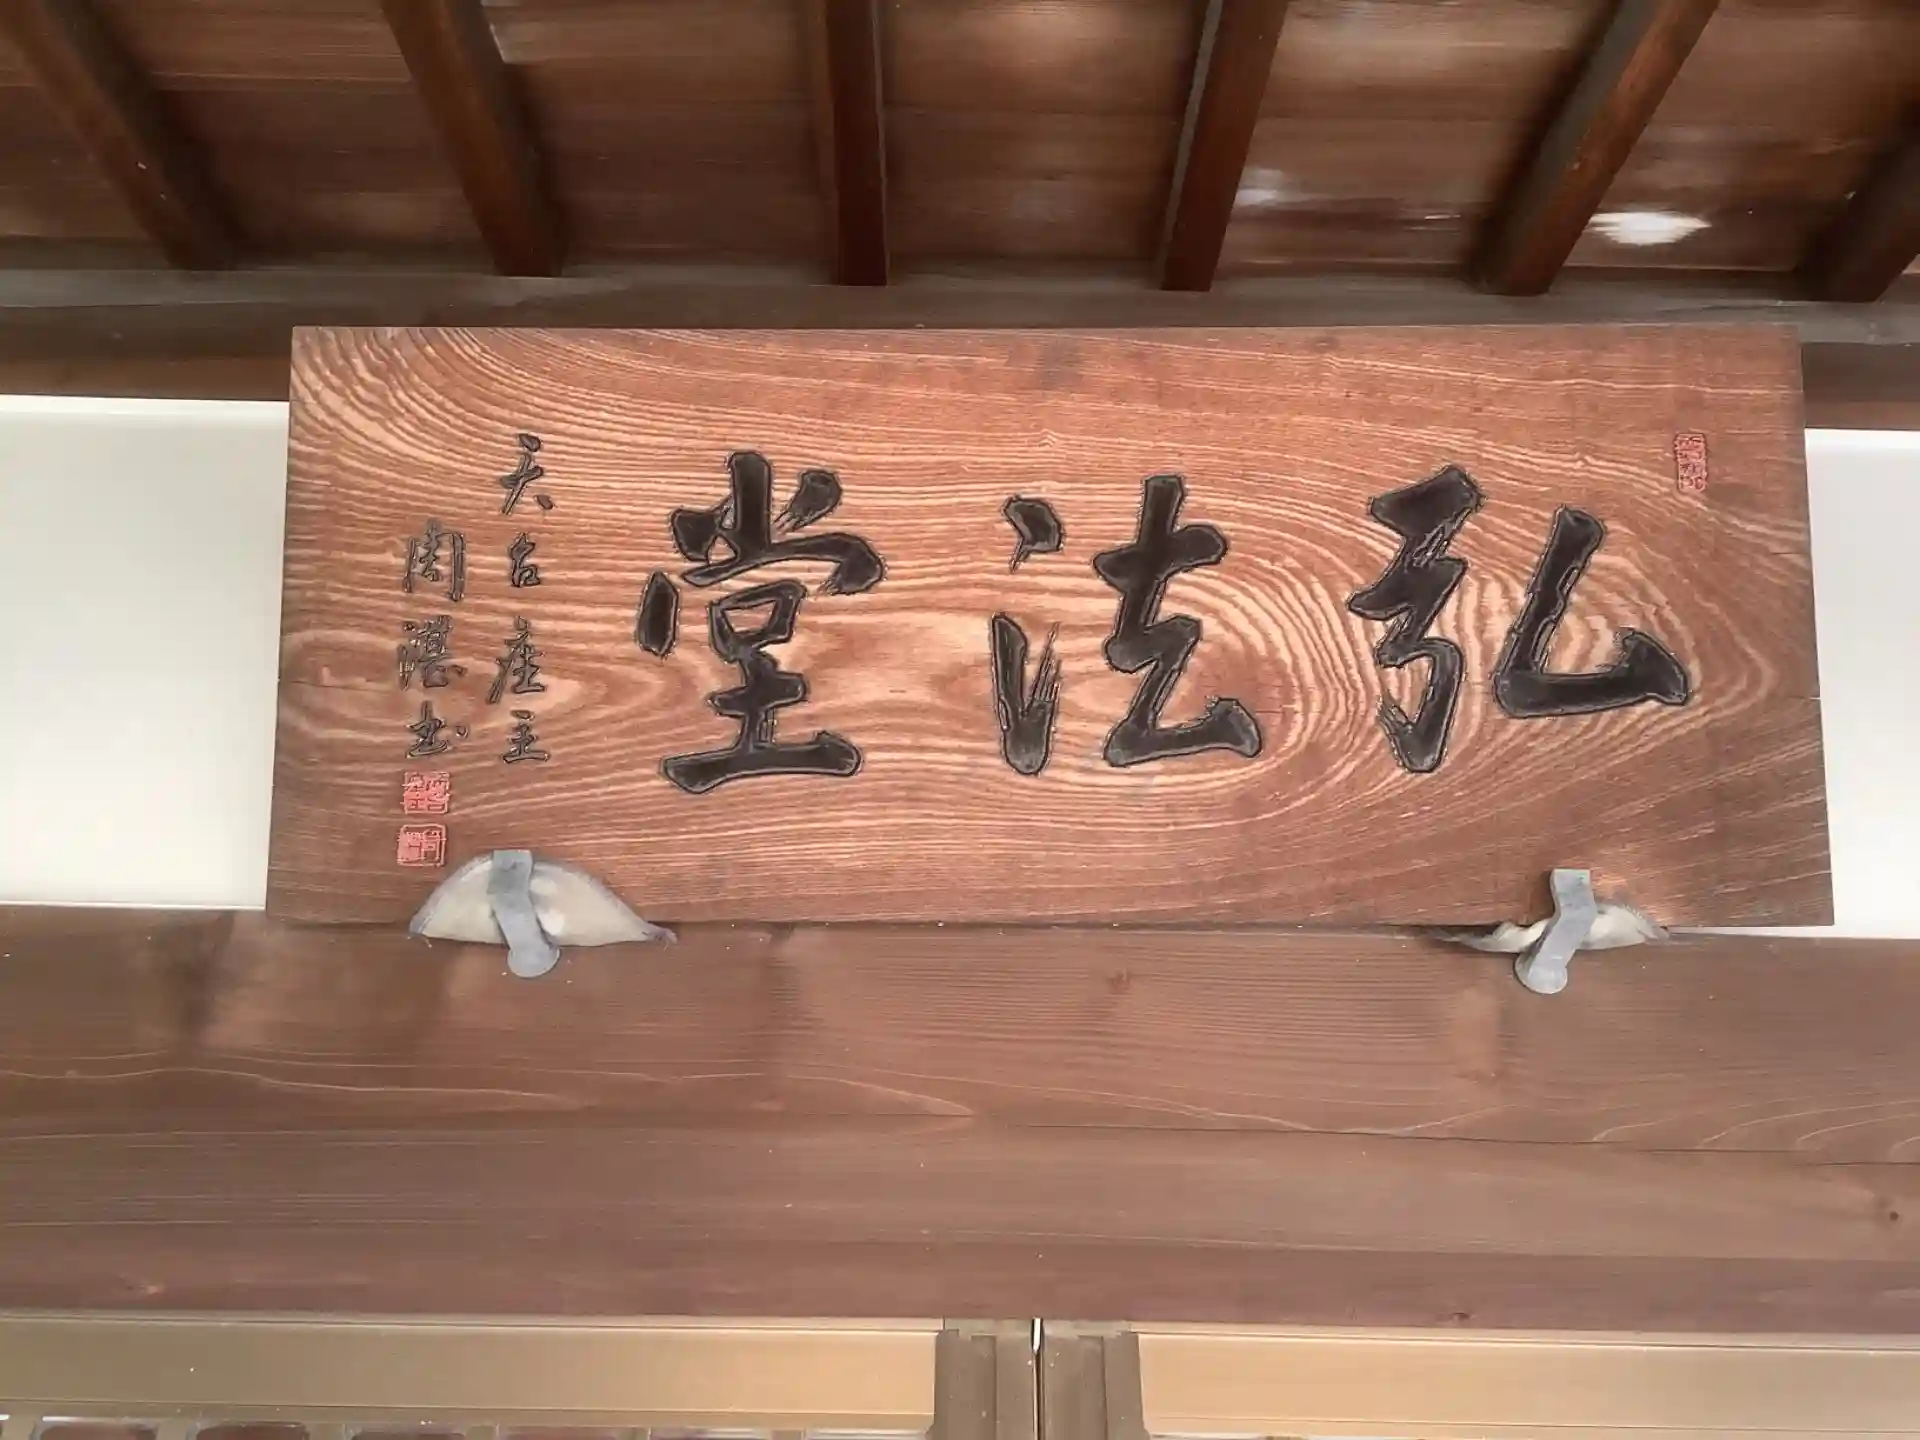 弘法堂
天台座主
周湛書